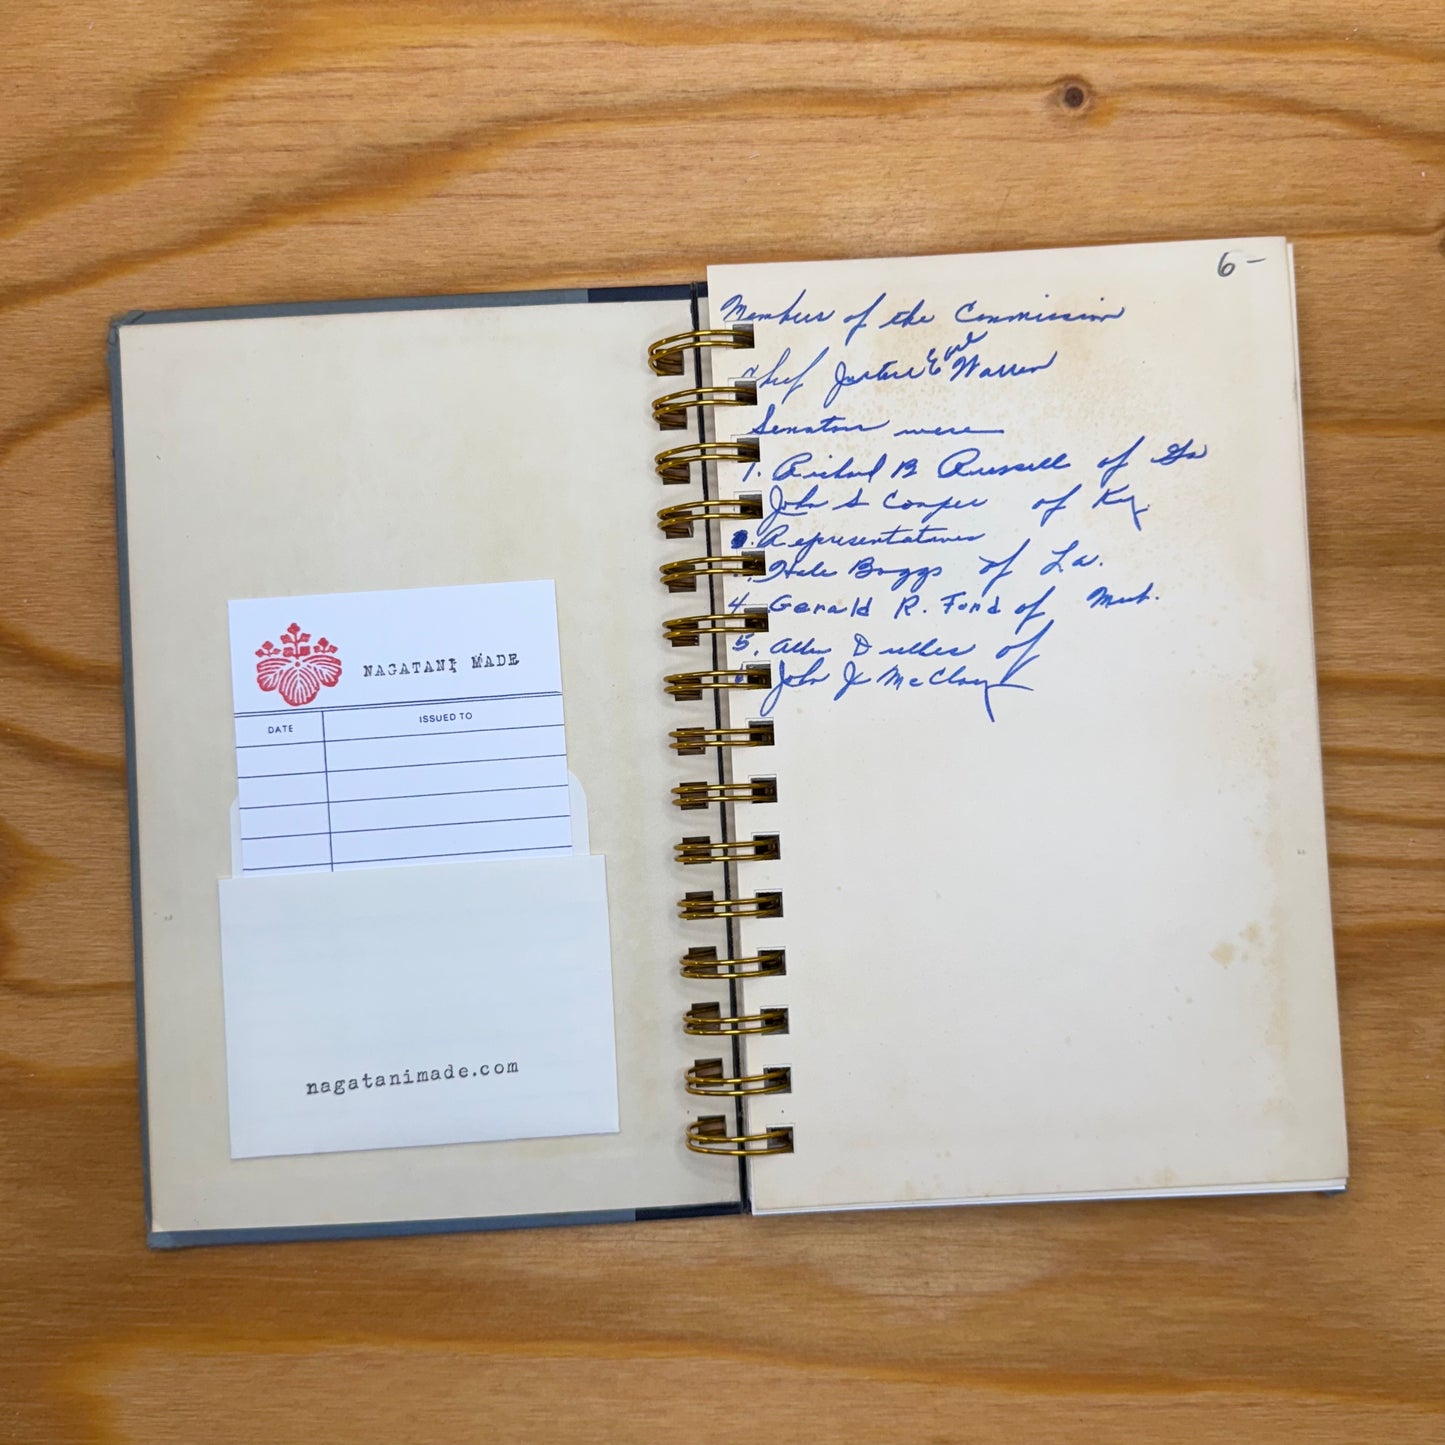 NAGATANI MADE
DATE ISSUED TO
nagatanimade.com
6-
Members of the Commission
Chief Justice Earl Warren
Senators were
1. Richard B Russell of Ga
John S Cooper of Ky.
Representatives
Hale Boggs of La.
4. Gerald R. Ford of Mich.
5. Allen Dulles of
John J. McCloy